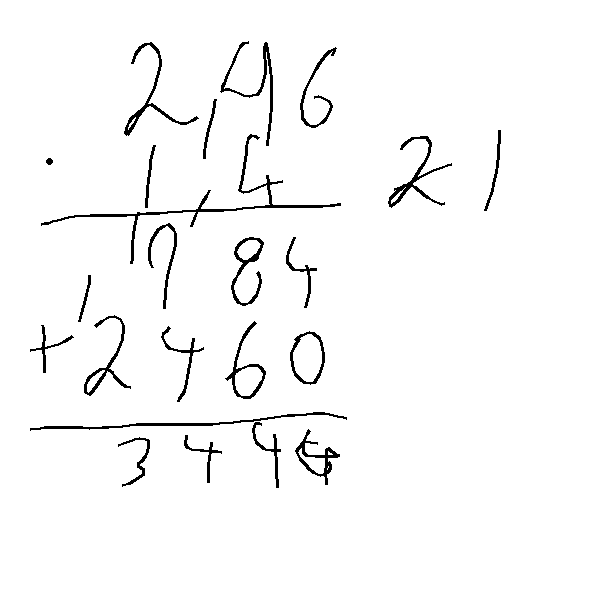 2,46
· 1,4 21
1 984
1
+ 2460
3444